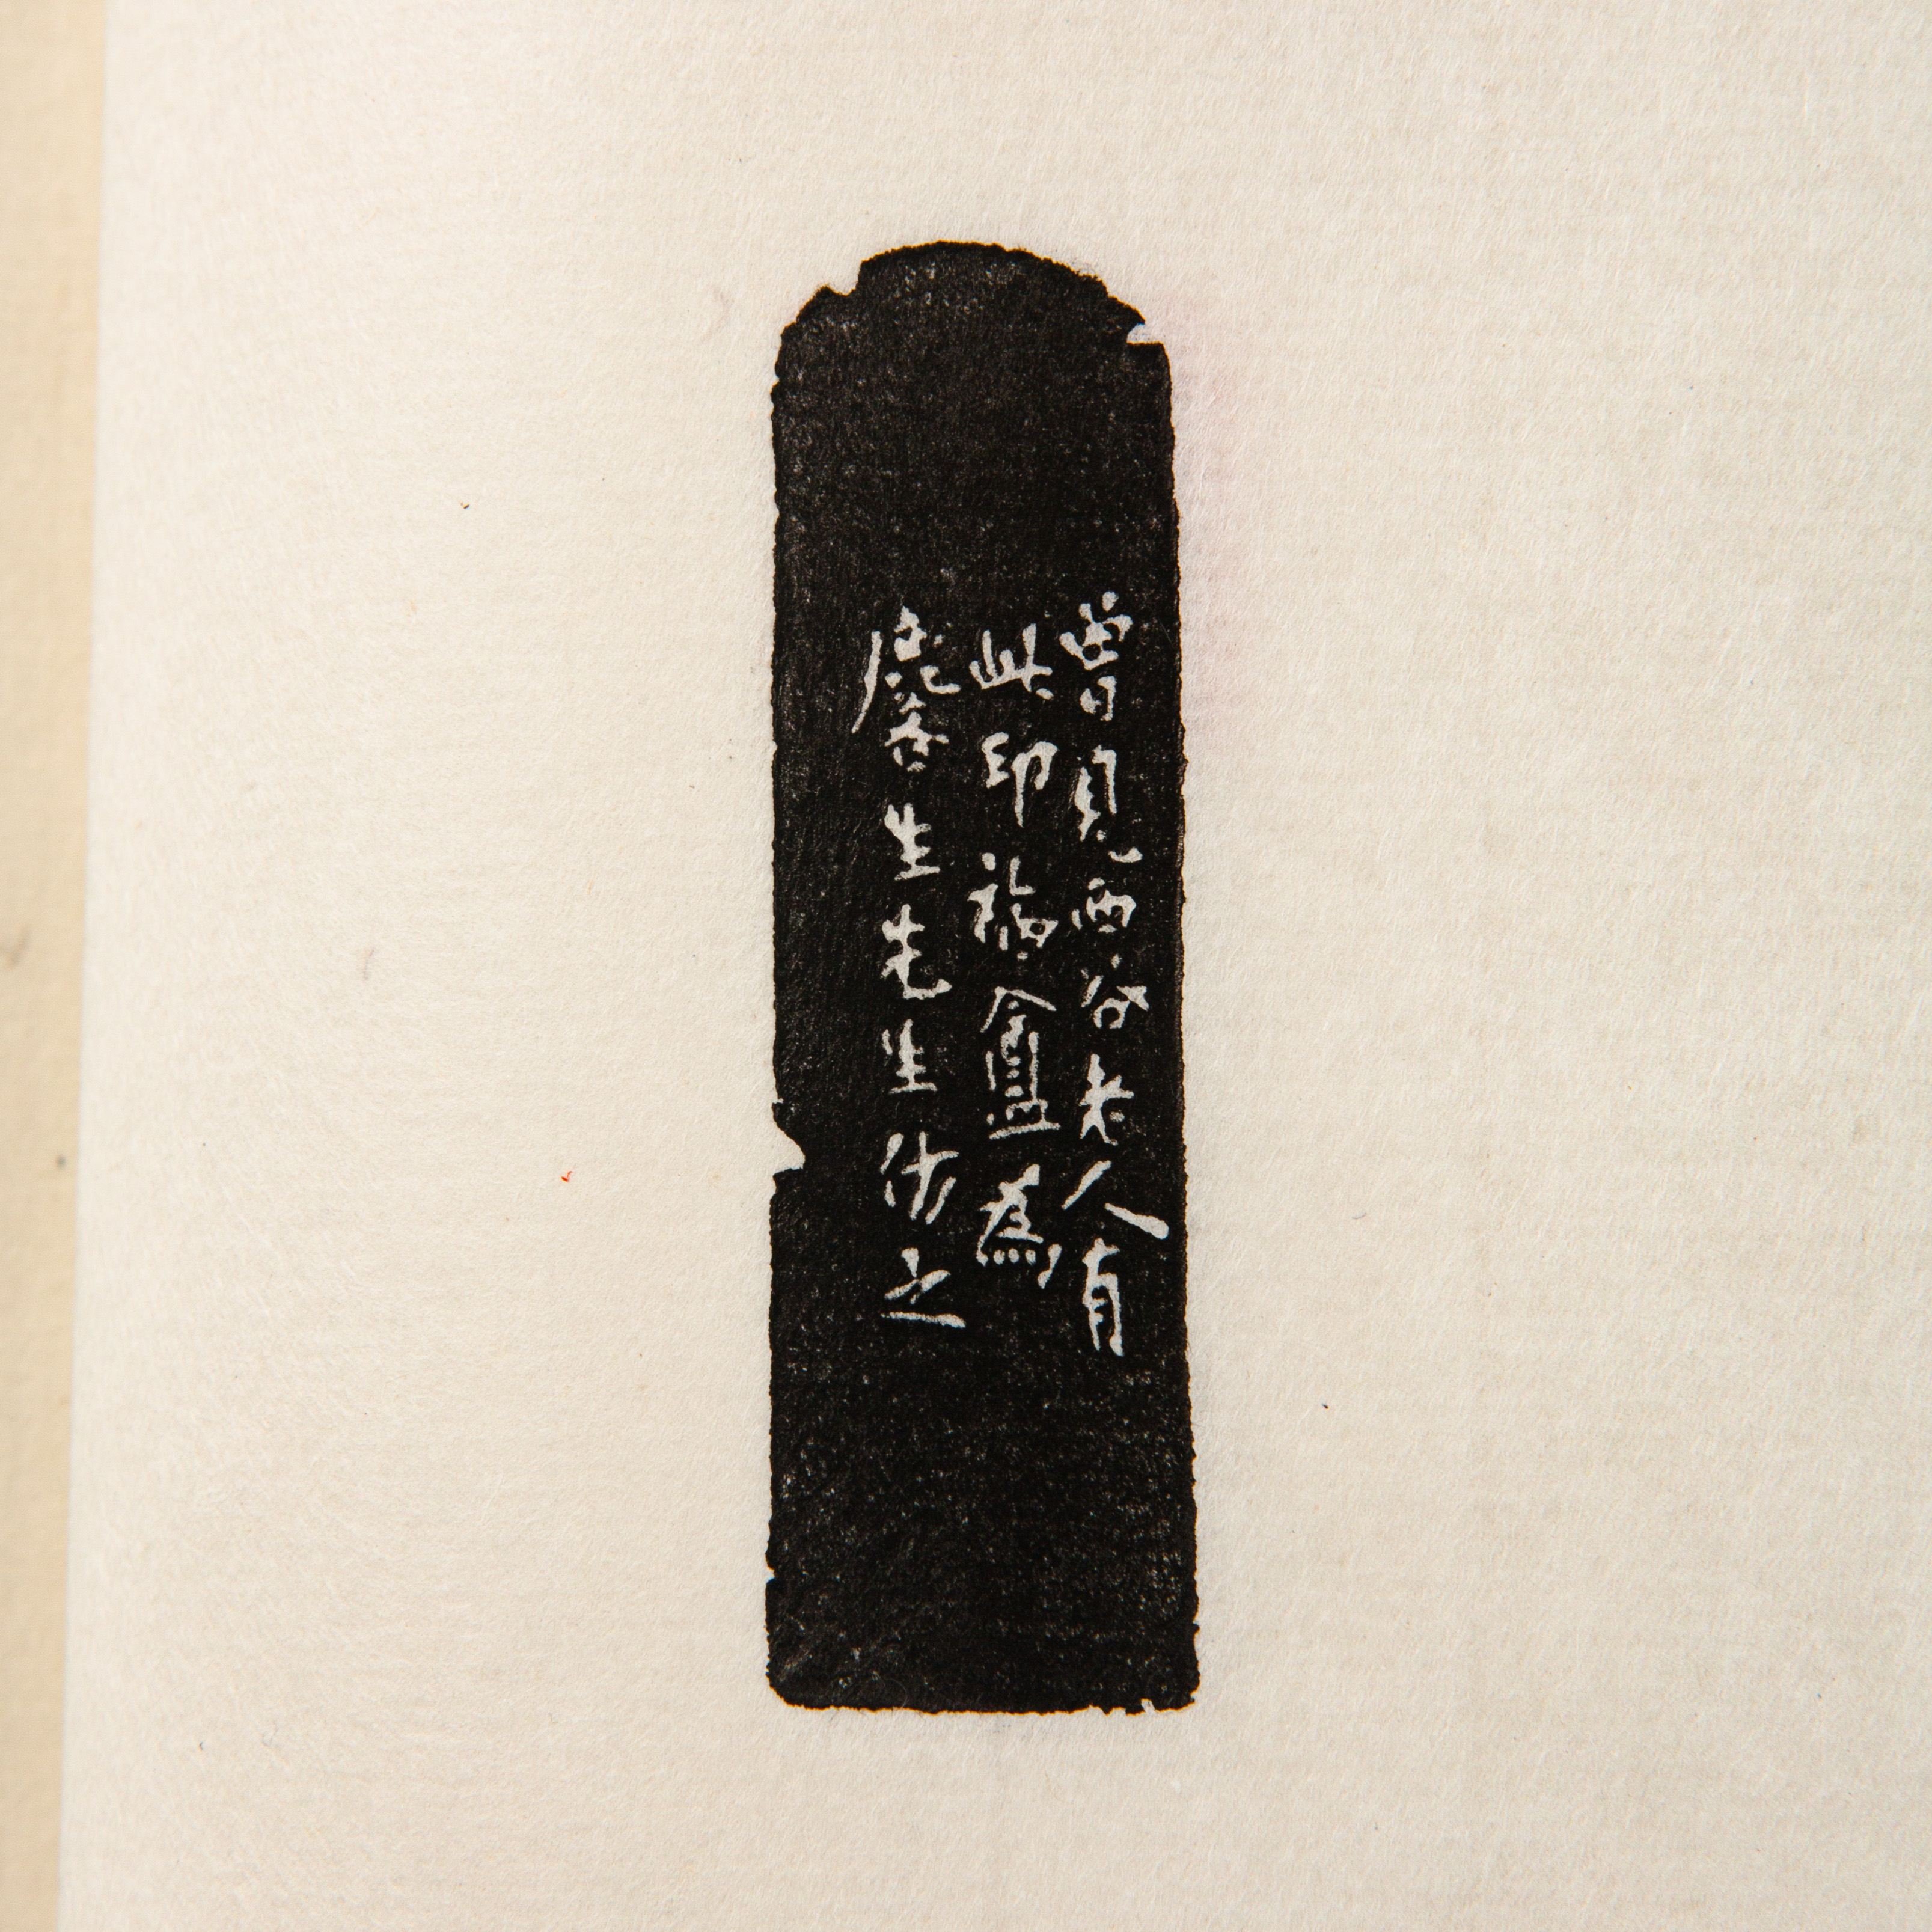 曾見西谷老人有
此印福盦爲
麐生先生仿之